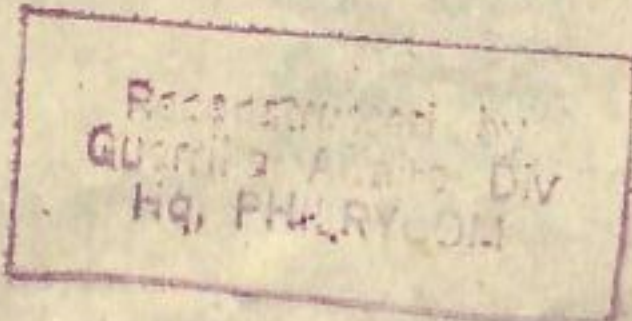 Reconstructed by
Guerrilla Affairs Div
Hq, PHILRYCOM